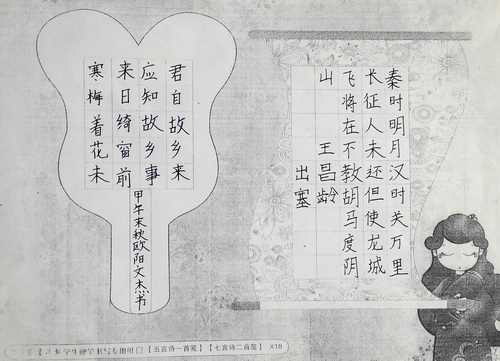 秦时明月汉时关万里
长征人未还但使龙城
飞将在不教胡马度阴
山 王昌龄
出塞
君自故乡来
应知故乡事
来日绮窗前
寒梅着花未
甲午末秋欧阳文杰书
【五言诗一首笺】【七言诗二首笺】 X18